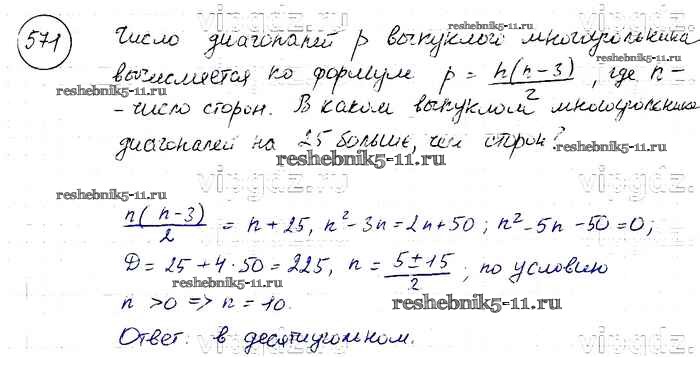 571
Число диагоналей p выпуклого многоугольника
вычисляется по формуле p = n(n-3)/2, где n -
- число сторон. В каком выпуклом многоугольнике
диагоналей на 25 больше, чем сторон?
n(n-3)/2 = n+25, n²-3n=2n+50; n²-5n-50=0;
D=25+4·50=225, n = 5±15/2; по условию
n >0 => n=10.
Ответ: в десятиугольном.
reshebnik5-11.ru
reshebnik5-11.ru
reshebnik5-11.ru
reshebnik5-11.ru
reshebnik5-11.ru
reshebnik5-11.ru
reshebnik5-11.ru